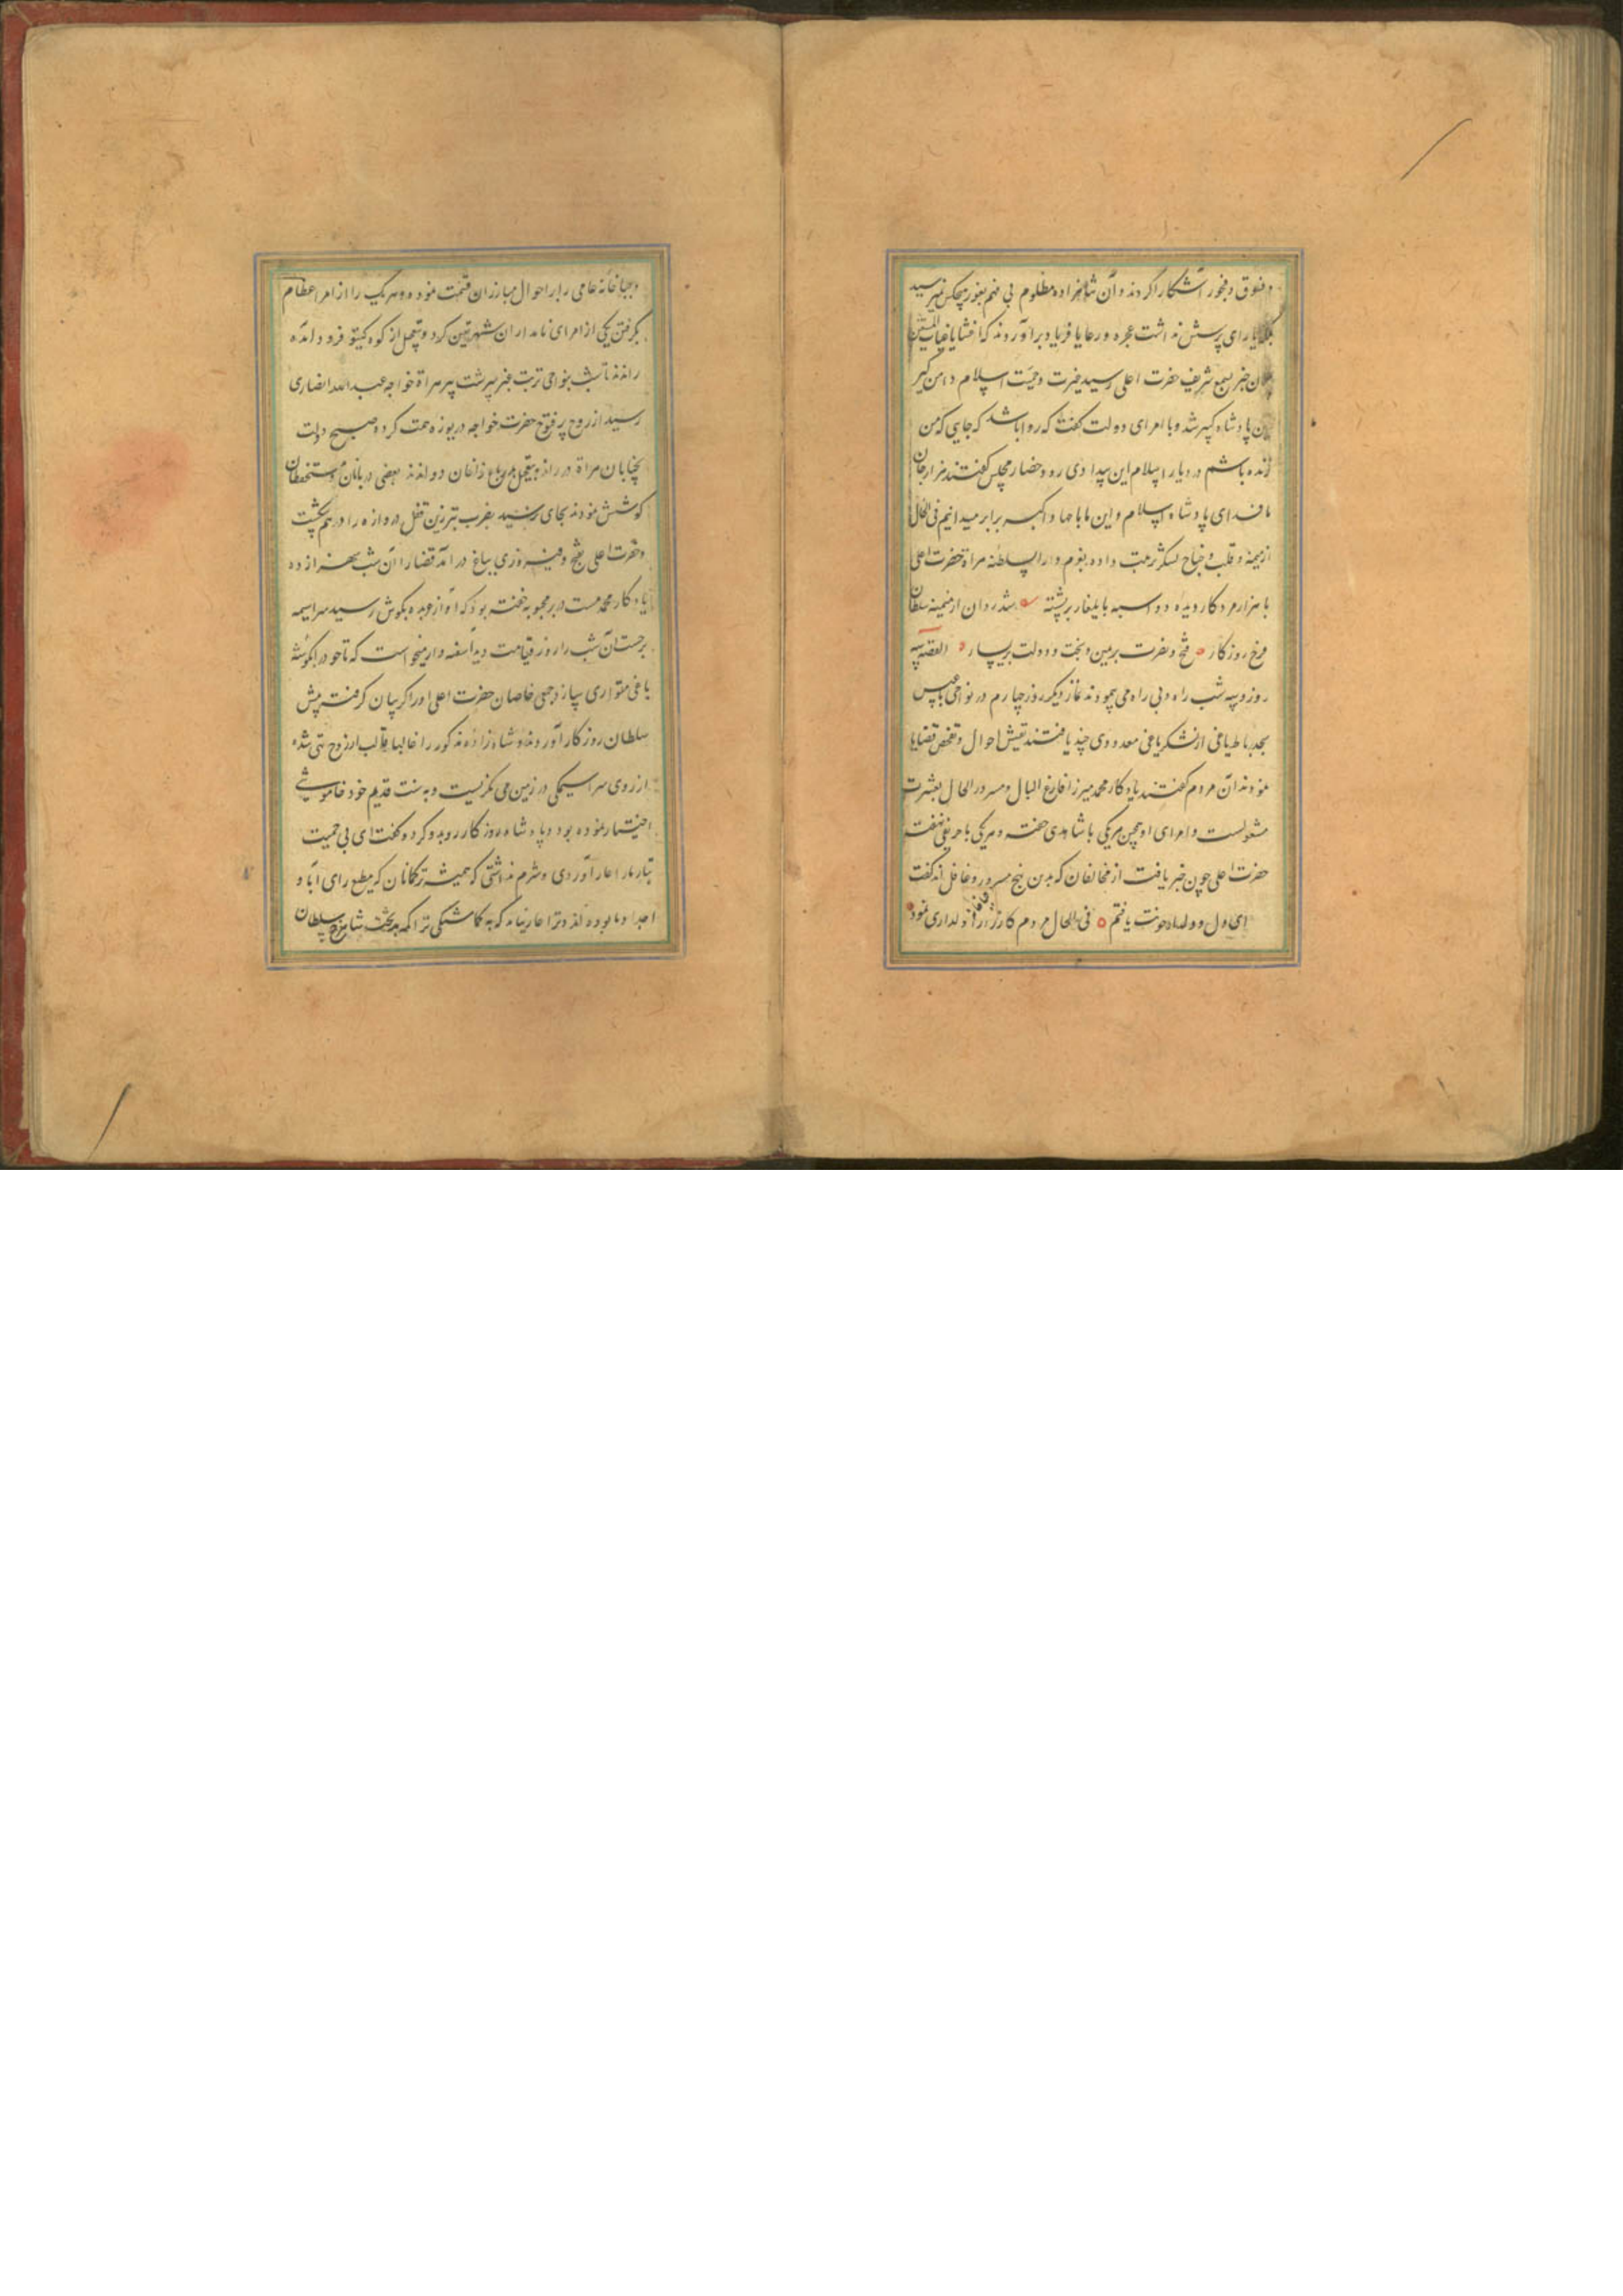 و فسوق و فجور آشکارا کردند و آن شاهزاده مظلوم بی فهم بغور هیچکس نمیرسید
یارای پرسش نداشت عجزه و رعایا فریاد برآوردند که اغثنا یا غیاث المستغیثین
این خبر بسمع شریف حضرت اعلی رسید غیرت و حمیت اسلام دامن گیر
این پادشاه کبیر شد و با امرای دولت گفت که روا باشد که جایی که من
زنده باشم در دیار اسلام این بیدادی رود حضار مجلس گفتند هزار جان
ما فدای پادشاه اسلام و این ما با جهاد اکبر برابر میدانیم فی الحال
از میمنه و قلب و جناح لشکر ترتیب داده بعزم دار السلطنه هراة حضرت اعلی
با هزار مرد کار دیده دو اسبه بایلغار بر پشته شد روان از میمنه سلطان
فرخ روزکار فتح و نصرت بر یمین و بخت و دولت بر یسار القصه سه
روز و سه شب راه و بی راه می پیمودند نماز دیگر روز چهارم در نواحی بادغیس
از لشکر یاغی معدودی چند یافتند تفتیش احوال و تفحص قضایا
نمودند آن مردم گفتند یادکار محمد میرزا فارغ البال و مسرور الحال بعشرت
مشغولست و امرای او همچنین هریکی با شاهدی خفته و هریکی با حریفی نهفته
حضرت اعلی چون خبر یافت از مخالفان که بدین نهج مسرور و غافل اند گفت
ای دل یافتم فی الحال مردم کارزار را دلداری نمود
و جباخانه عامی را بر احوال مبارزان قسمت نموده و هر یک را از امراء عظام
بگرفتن یکی از امرای نامداران شهر تعیین کرد و بتعجیل از کوه کیتو فرود آمده
راندند تا شب بنواحی تربت عنبر سرشت پیر هراة خواجه عبدالله انصاری
رسید از روح پر فتوح حضرت خواجه دریوزه همت کرده صبح دولت
بخیابان هراة در راند و بتعجیل بدر باغ زاغان دواندند بعضی دربانان و مستحفظان
کوشش نمودند بجای نرسید بضرب تبرزین قفل دروازه را در هم شکست
و حضرت اعلی بفتح و فیروزی بباغ در آمد قضا را آن شب شهزاده
یادکار محمد مست در بر محبوبه خفته بود که آواز عربده بگوش رسید سراسیمه
برجست آن شب را روز قیامت دید آسفه وار میخواست که تا خود را بگوشه
باغی متواری سازد جمعی خاصان حضرت اعلی او را گریبان گرفته پیش
سلطان روزکار آوردند و شاه زاده مذکور را غالبا قالب از روح تهی شده
از روی سراسیمگی در زمین می نگریست و به سنت قدیم خود خاموشی
اختیار نموده بود و پادشاه روزکار رو بدو کرد و گفت ای بی حمیت
تبار ما را عار آوردی و شرم نداشتی که همیشه ترکمانان که مطیع رای آبا و
اجداد ما بوده اند و ترا عار نیامد که به کماشتگی تراکمه بر تخت شاهرخ سلطان